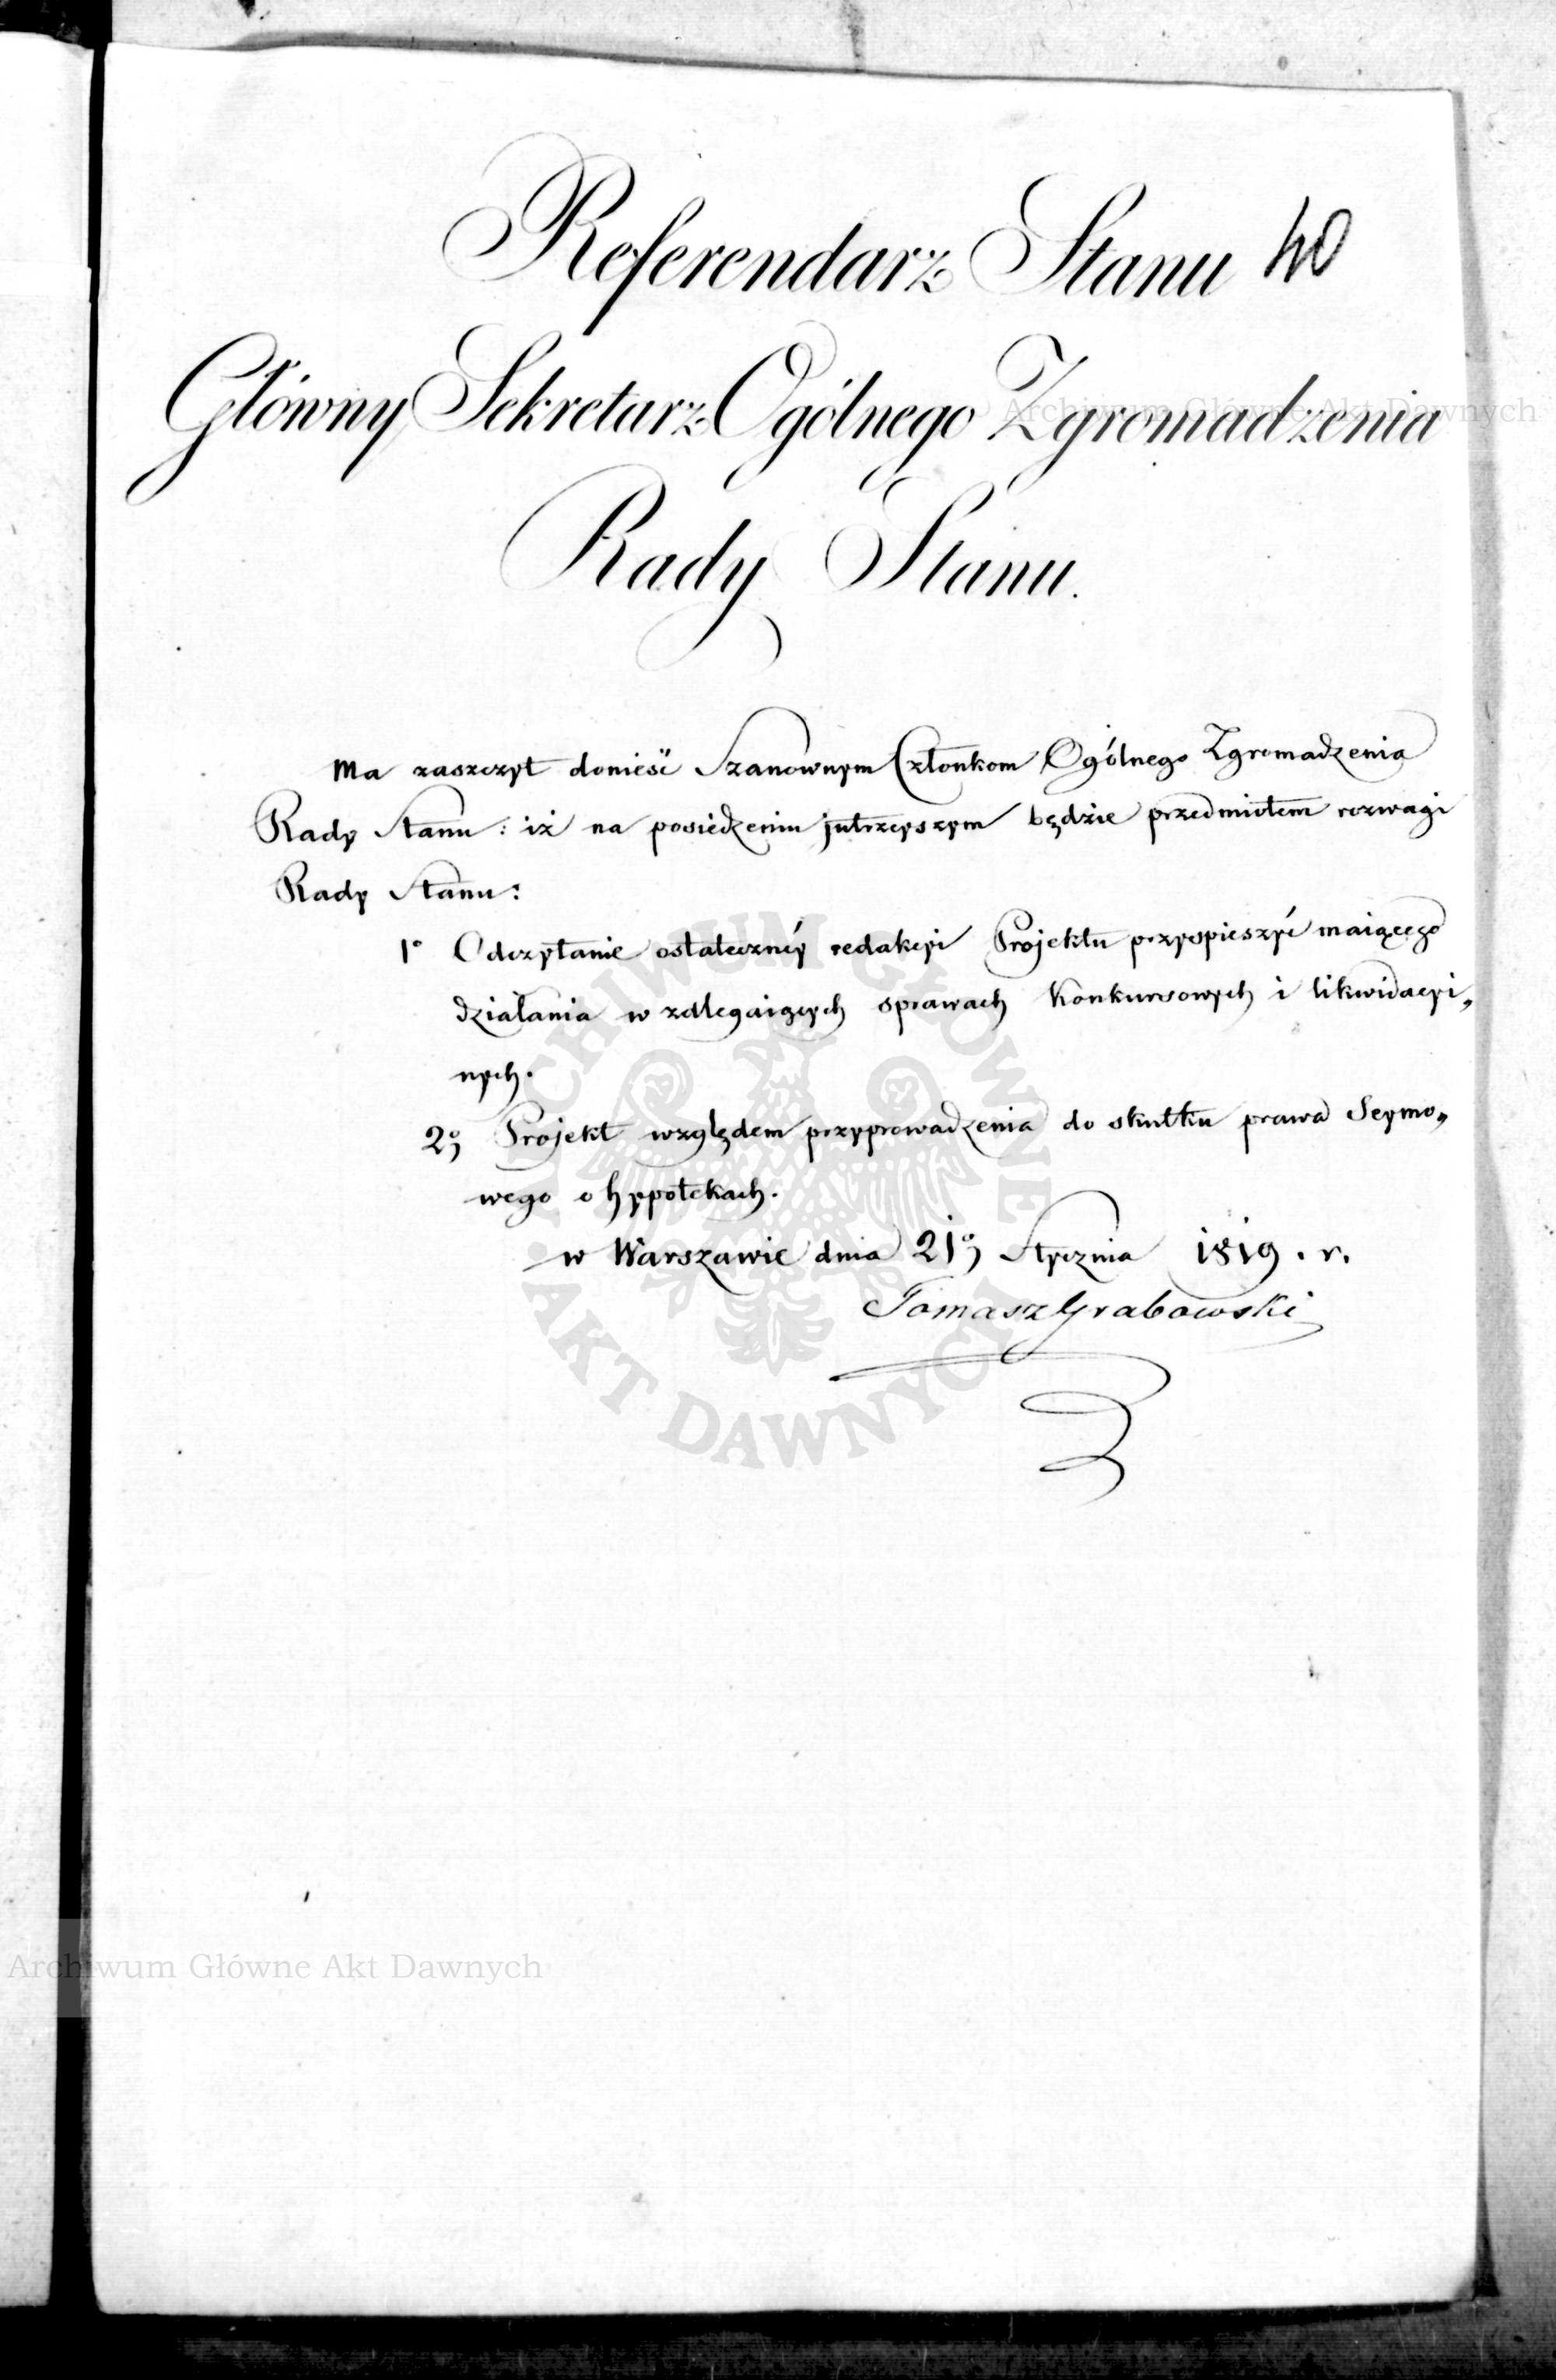 Referendarz Stanu 40
Główny Sekretarz Ogólnego Zgromadzenia
Archiwum Główne Akt Dawnych
Rady Stanu.
Ma zaszczyt donieść Szanownym Członkom Ogólnego Zgromadzenia
Rady Stanu: iż na posiedzeniu jutrzeyszym będzie przedmiotem rozwagi
Rady Stanu:
1° Odczytanie ostateczney redakcyi Projektu przyspieszyć maiącego
działania w zalegaiących sprawach konkursowych i likwidacyi„
nych.
2° Projekt względem przyprowadzenia do skutku prawa Seymo„
wego o hypotekach.
w Warszawie dnia 21° Stycznia 1819. r.
Tomasz Grabowski
ARCHIWUM GŁÓWNE
AKT DAWNYCH
Archiwum Główne Akt Dawnych